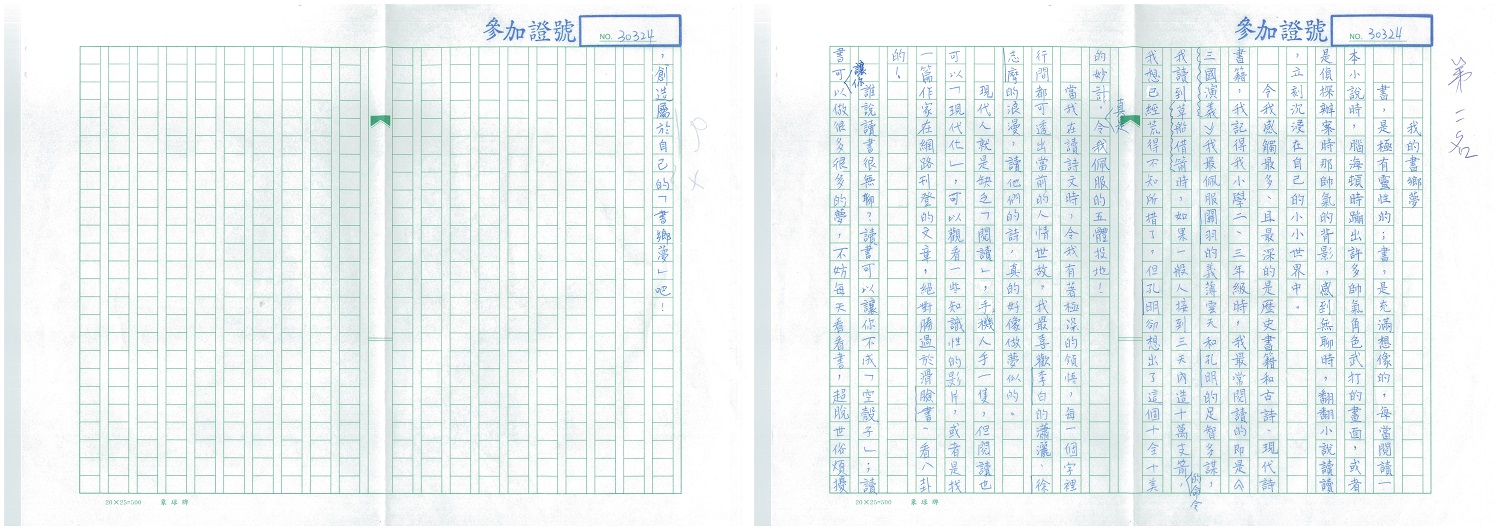 參加證號
NO. 30324
第二名
我的書鄉夢
書，是極有靈性的；書，是充滿想像的，每當閱讀一
本小說時，腦海頓時蹦出許多帥氣角色武打的畫面，或者
是偵探辦案時那帥氣的背影，感到無聊時，翻翻小說讀讀
，立刻沉浸在自己的小小世界中。
令我感觸最多、且最深的是歷史書籍和古詩、現代詩
書籍，我記得我小學二、三年級時，我最常閱讀的即是《
三國演義》我最佩服關羽的義薄雲天和孔明的足智多謀，
我讀到草船借箭時，如果一般人接到三天內造十萬支箭的命令，
我想已經荒得不知所措了，但孔明卻想出了這個十全十美
的妙計，真是令我佩服的五體投地！
當我在讀詩文時，令我有著極深的領悟，每一個字裡
行間都可透出當前的人情世故，我最喜歡李白的瀟灑、徐
志摩的浪漫，讀他們的詩，真的好像做夢似的。
現代人就是缺乏「閱讀」，手機人手一隻，但閱讀也
可以「現代化」，可以觀看一些知識性的影片，或者是找
一篇作家在網路刊登的文章，絕對勝過於滑臉書、看八卦
的！
誰說讀書很無聊？讀書可以讓你不成「空殼子」；讀
書可以讓你做很多很多的夢，不妨每天看看書，超脫世俗煩擾
20×25=500 象球牌
參加證號
NO. 30324
，創造屬於自己的「書鄉夢」吧！
20×25=500 象球牌